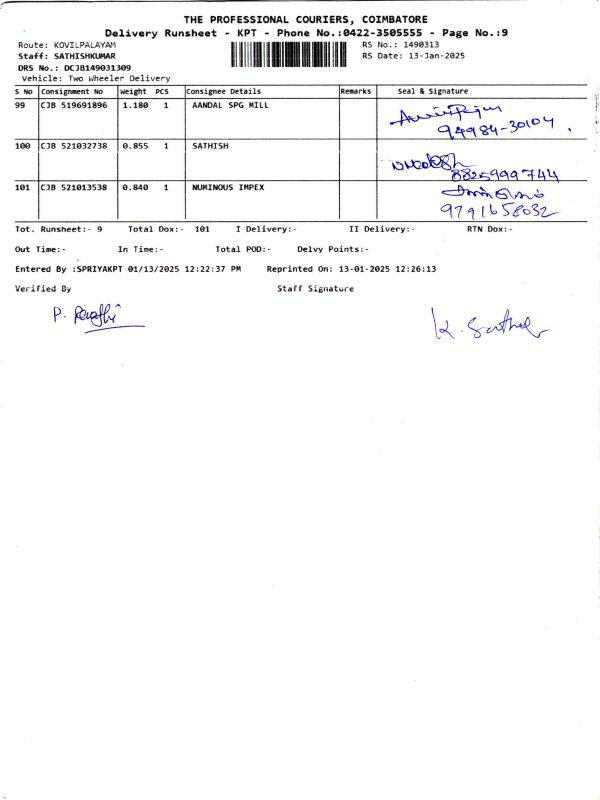 THE PROFESSIONAL COURIERS, COIMBATORE
Delivery Runsheet - KPT - Phone No.:0422-3505555 - Page No.:9
Route: KOVILPALAYAM RS No.: 1490313
Staff: SATHISHKUMAR RS Date: 13-Jan-2025
DRS No.: DCJB149031309
Vehicle: Two Wheeler Delivery
S No Consignment No Weight PCS Consignee Details Remarks Seal & Signature
99 CJB 519691896 1.180 1 AANDAL SPG MILL
94984-30104
100 CJB 521032738 0.855 1 SATHISH
8825999744
101 CJB 521013538 0.840 1 NUMINOUS IMPEX
9791658032
Tot. Runsheet:- 9 Total Dox:- 101 I Delivery:- II Delivery:- RTN Dox:-
Out Time:- In Time:- Total POD:- Delvy Points:-
Entered By :SPRIYAKPT 01/13/2025 12:22:37 PM Reprinted On: 13-01-2025 12:26:13
Verified By Staff Signature